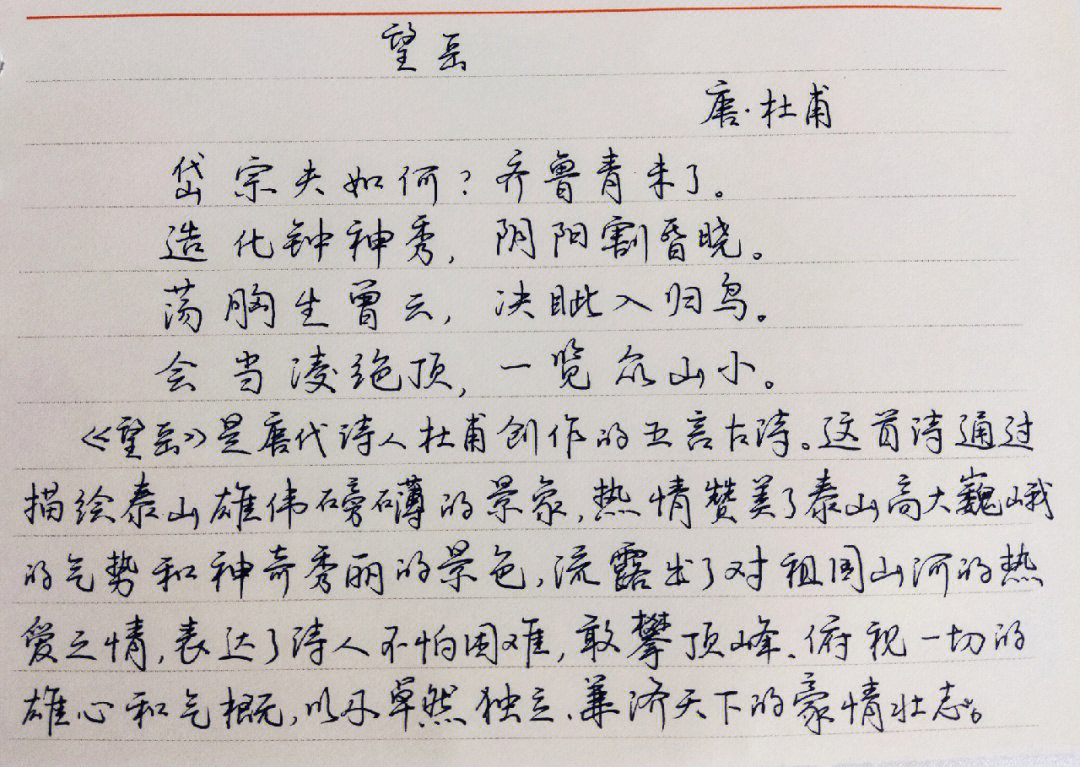 望岳
唐·杜甫
岱宗夫如何?齐鲁青未了。
造化钟神秀,阴阳割昏晓。
荡胸生曾云,决眦入归鸟。
会当凌绝顶,一览众山小。
《望岳》是唐代诗人杜甫创作的五言古诗。这首诗通过
描绘泰山雄伟磅礴的景象,热情赞美了泰山高大巍峨
的气势和神奇秀丽的景色,流露出了对祖国山河的热
爱之情,表达了诗人不怕困难,敢攀顶峰、俯视一切的
雄心和气概,以及卓然独立、兼济天下的豪情壮志。